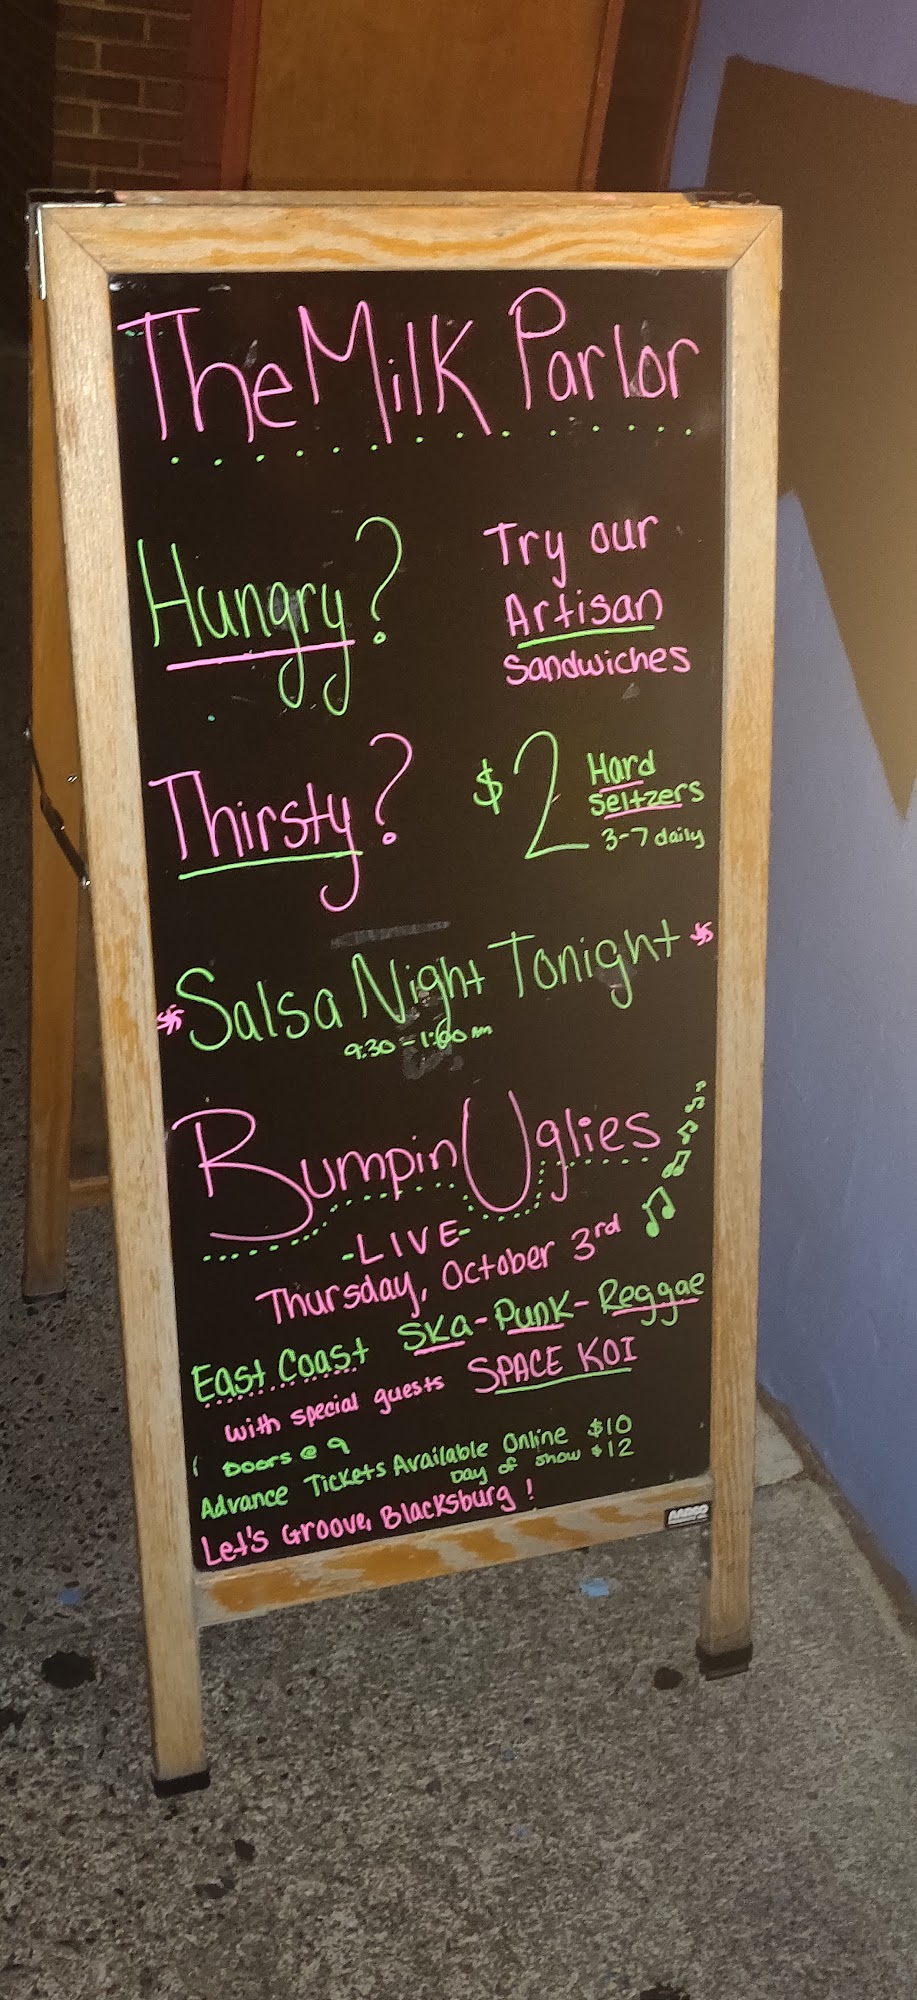 The Milk Parlor
Hungry?
Try our
Artisan
Sandwiches
Thirsty?
$2 Hard
Seltzers
3-7 daily
Salsa Night Tonight
9:30 - 1:00 AM
Bumpin Uglies
-LIVE-
Thursday, October 3rd
East Coast Ska-Punk-Reggae
with special guests SPACE KOI
Doors @ 9
Advance Tickets Available Online $10
Day of show $12
Let's Groove, Blacksburg!